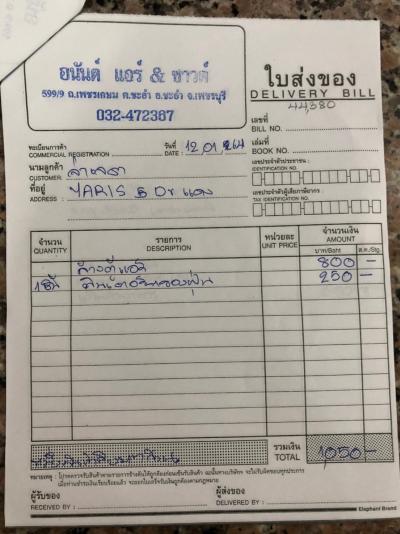 อนันต์ แอร์ & ซาวด์
599/9 ถ.เพชรเกษม ต.ชะอำ อ.ชะอำ จ.เพชรบุรี
032-472387
ใบส่งของ
DELIVERY BILL
44,380
เลขที่
BILL NO.
ทะเบียนการค้า
COMMERCIAL REGISTRATION
วันที่
DATE : 12.01.64
เล่มที่
BOOK NO.
นามลูกค้า
CUSTOMER
เลขประจำตัวประชาชน :
IDENTIFICATION NO.
ที่อยู่
ADDRESS : YARIS 5 Dr แดง
เลขประจำตัวผู้เสียภาษีอากร :
TAX IDENTIFICATION NO.
จำนวน
QUANTITY
รายการ
DESCRIPTION
หน่วยละ
UNIT PRICE
จำนวนเงิน
AMOUNT
บาท/Baht
ส.ต./Stg.
ล้างตู้แอร์ 800 -
250 -
รวมเงิน
TOTAL 1,050 -
ผู้รับของ
RECEIVED BY :
ผู้ส่งของ
DELIVERED BY :
Elephant Brand